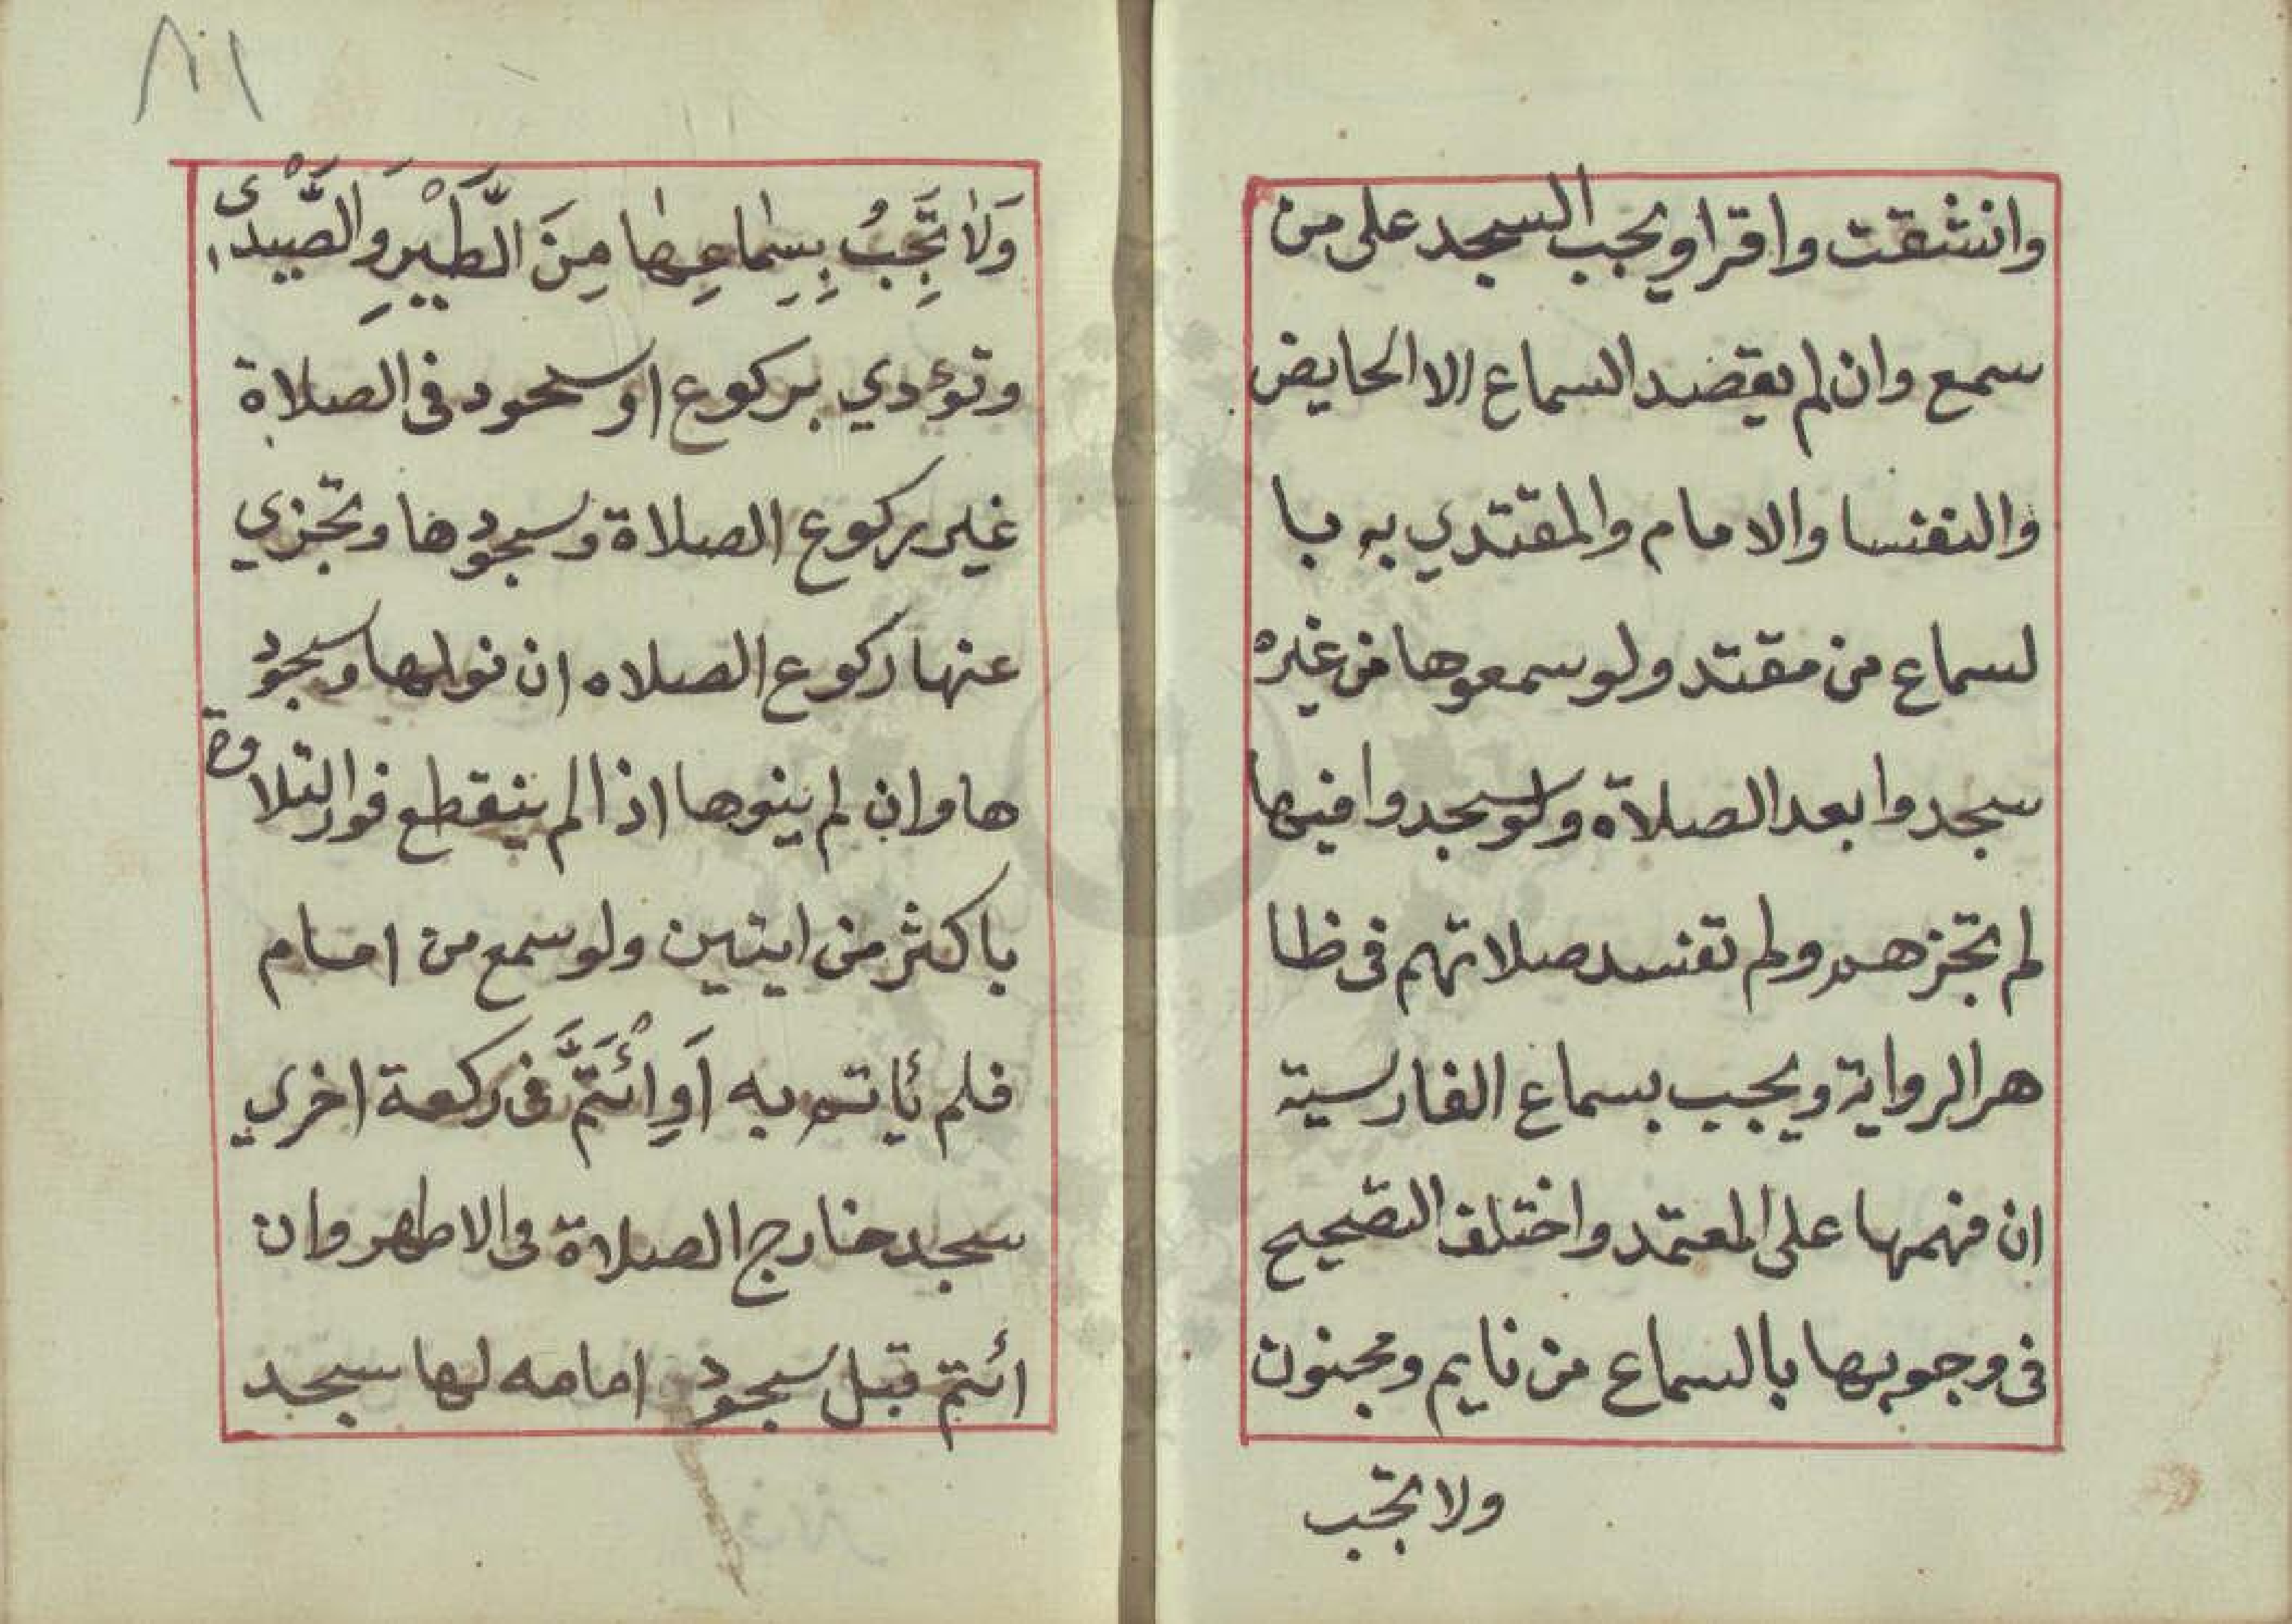 وانشقت واقرا ويجب السجد على من
سمع وان لم يقصد السماع الا الحايض
والنفسا والامام والمقتدي به با
لسماع من مقتد ولو سمعوها من غيره
سجدوا بعد الصلاة ولو سجدوا فيها
لم تجزهم ولم تفسد صلاتهم فى ظا
هر الرواية ويجب بسماع الفارسية
ان فهمها على المعتمد واختلف التصحيح
فى وجوبها بالسماع من نايم ومجنون
ولا تجب
٨١
وَلَا تَجِبُ بِسِمَاعِهَا مِنَ الطَّيْرِ وَالصَّيدَى
وتوءدي بركوع او سجود فى الصلاة
غير ركوع الصلاة وسجودها وتجزي
عنها ركوع الصلاه ان نواها وسجود
ها وان لم ينوها اذا لم ينقطع فور التلاوة
باكثر من ايتين ولو سمع من امام
فلم يأتم به أَوِ ائْتَمَّ فى ركعة اخري
سجد خارج الصلاة فى الاطهر وان
ائتم قبل سجود امامه لها سجد